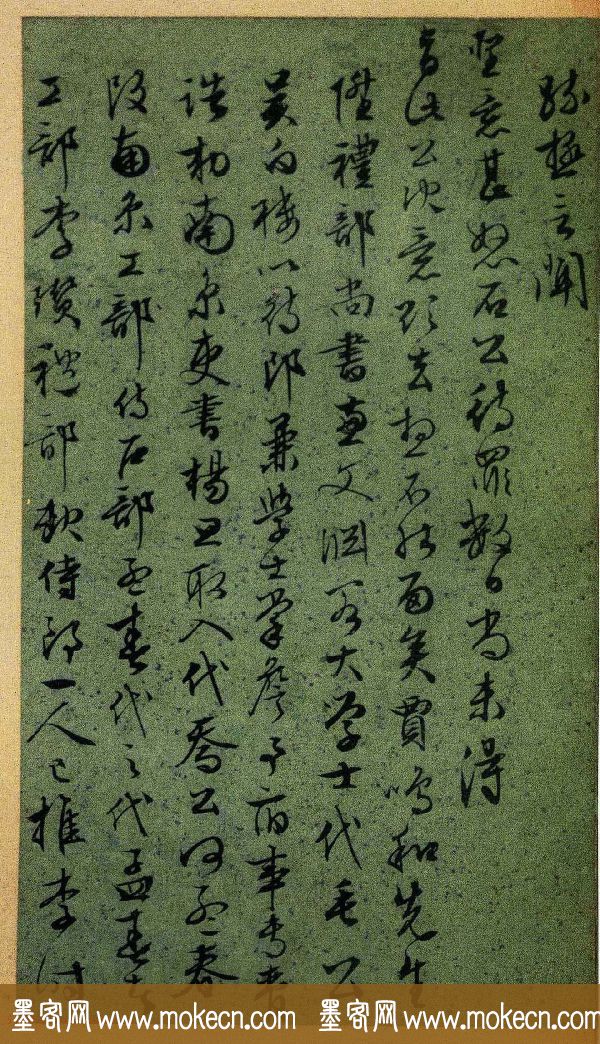 極言聞
聖意甚怒石公待罪數日尚未得
旨此公次意歸去想不能留矣賈鳴和先生
陞禮部尚書兼文淵閣大學士代毛公
吳白樓以待郎兼學士掌詹事府事專管
誥勅南京吏書楊旦取入代喬公何孟春
改南京工部侍右部孟春代之代孟春
工部李瓚禮部缺侍郎一人已推李時
墨客网 www.mokecn.com 墨客网 www.mokecn.com